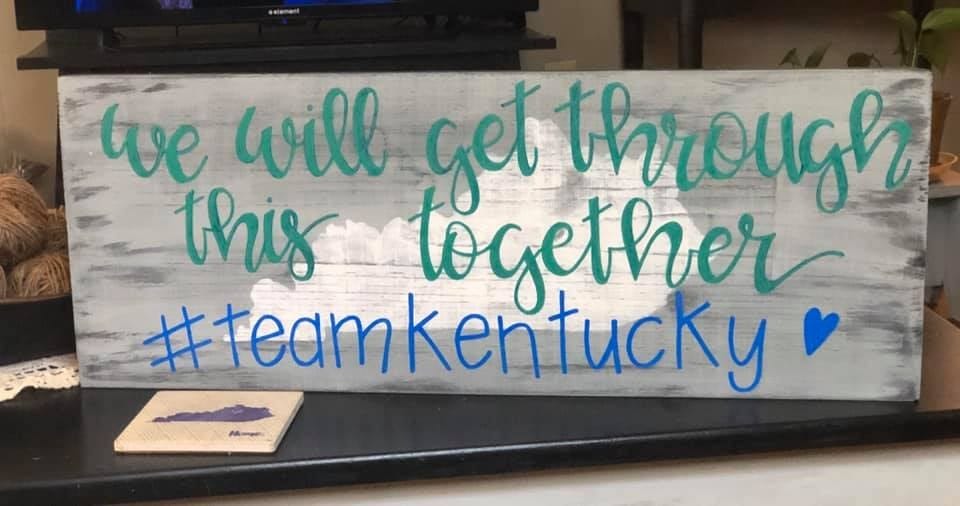 element
we will get through
this together
#teamkentucky
Home